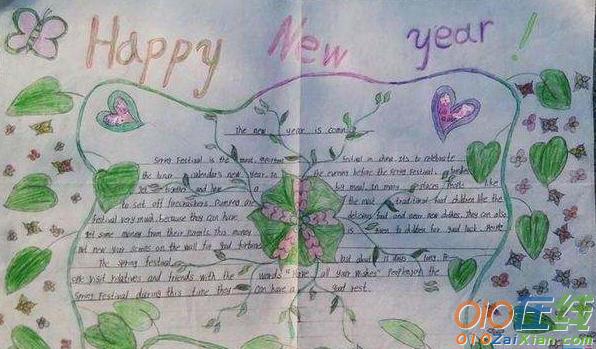 Happy New year !
The new year is comin
Spring Festival is the most festival in china. Its to celebrate
the lunar calendars new year. In the evening before the Spring Festival families
get together and have a meal. In many places people like
to set off firecrackers. Dumpling are the most traditional food. Children like the
festival very much, because they can have delicing food and new clothes. They can also
get some money from their parents. This money is given to children for good luck.
put new year scrolls on the wall for good fortune
The Spring festival
visit relatives and friends with the words "Have all your wishes" People
Spring Festival during this time they can have a good rest.
O1O在线
O1OZaiXian.com